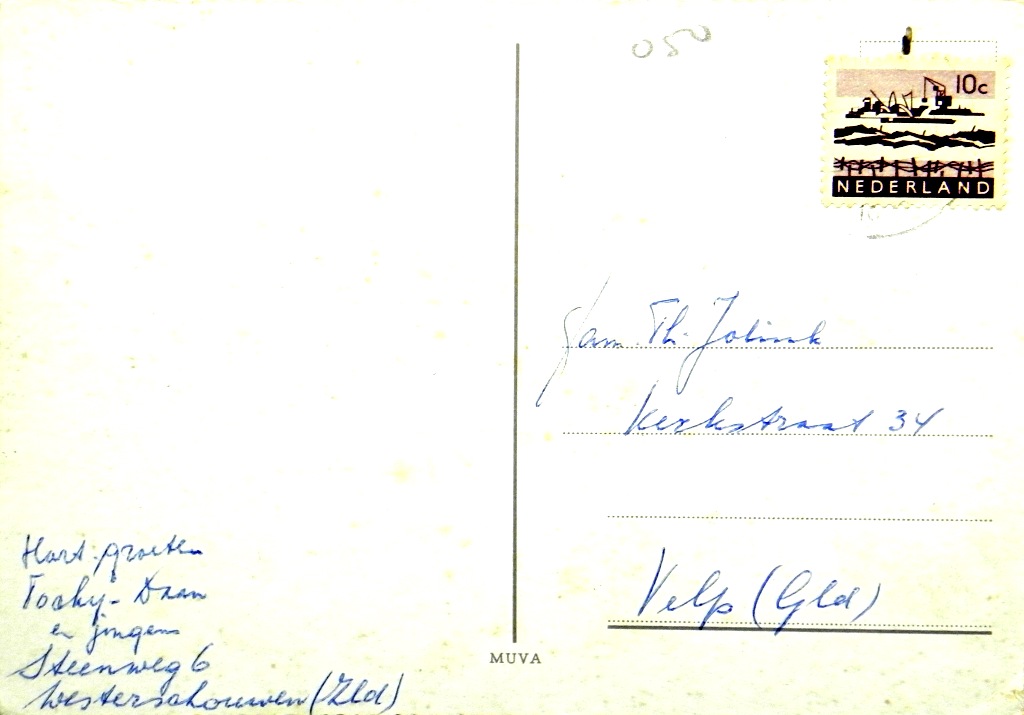 050
10c
NEDERLAND
Fam. Th. Jolink
Kerkstraat 34
Velp (Gld)
Hart. groeten
Daan
en jongens
Steenweg 6
Westerschouwen (Zld)
MUVA